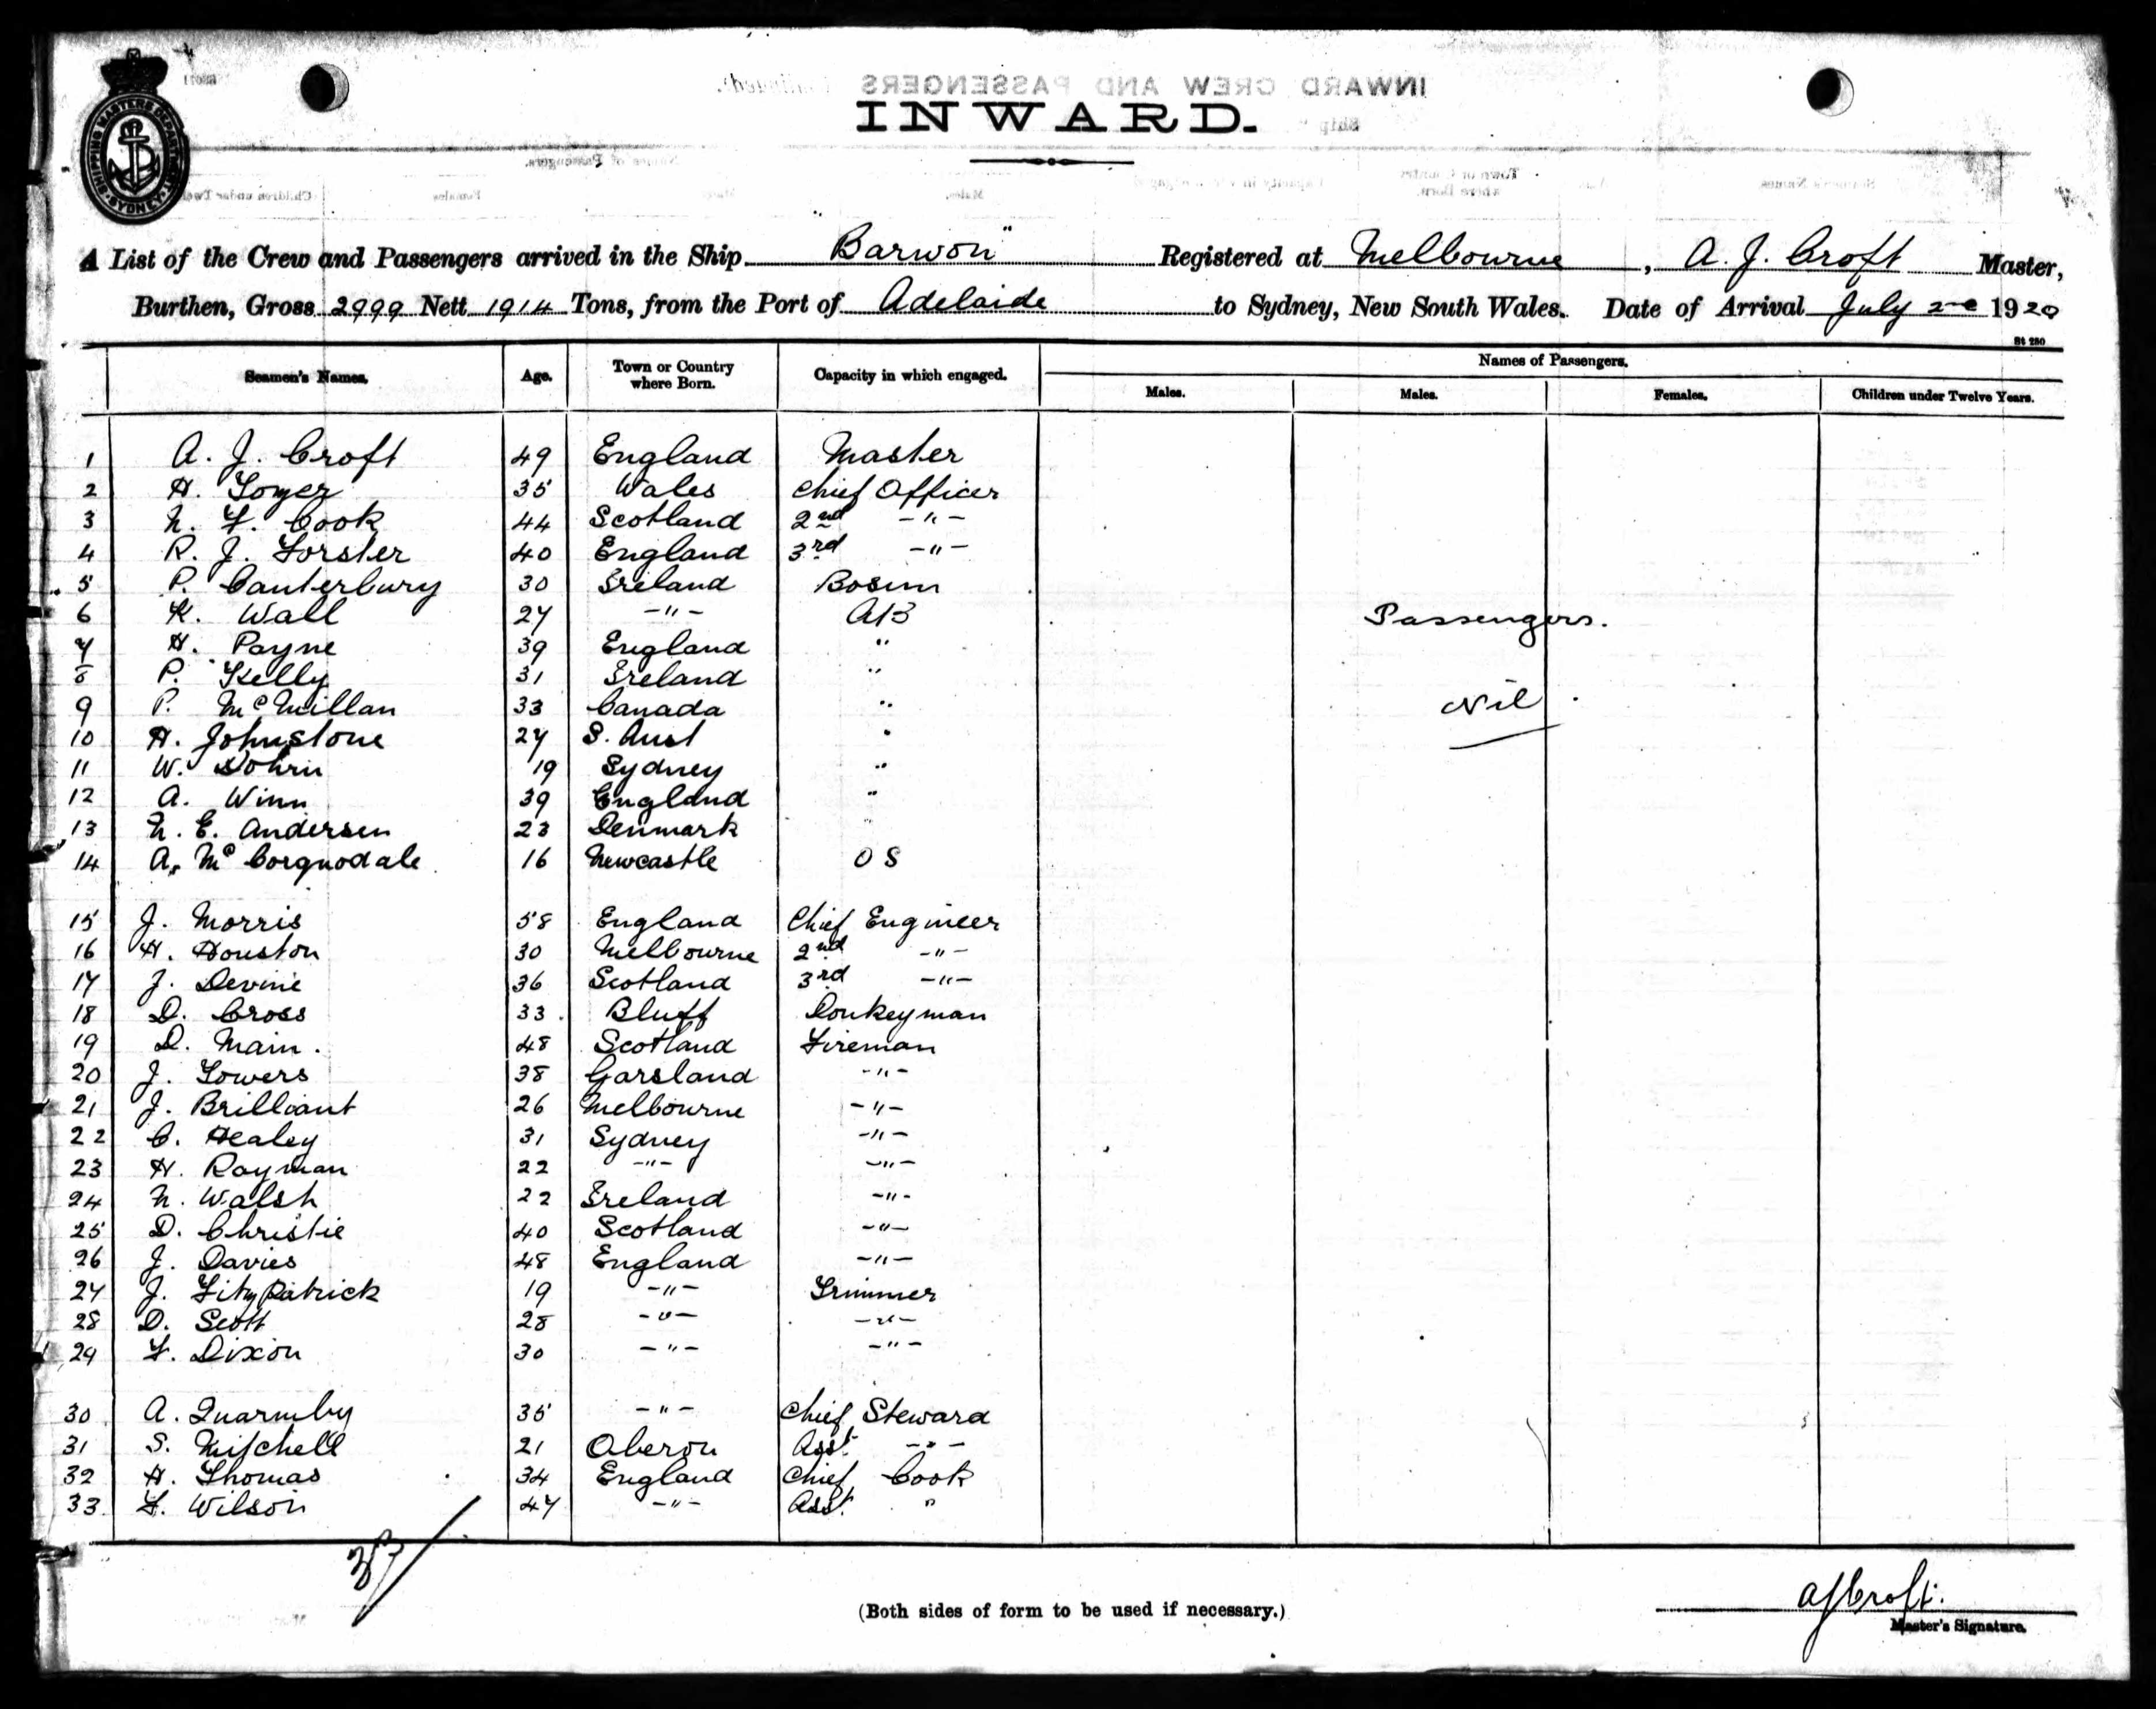 SHIPPING MASTERS DEPARTMENT
SYDNEY
INWARD CREW AND PASSENGERS
INWARD.
A List of the Crew and Passengers arrived in the Ship "Barwon" Registered at Melbourne, A. J. Croft Master,
Burthen, Gross 2999 Nett 1914 Tons, from the Port of Adelaide to Sydney, New South Wales. Date of Arrival July 2nd 1920
St 250
Seamen's Names. Age. Town or Country where Born. Capacity in which engaged. Names of Passengers.
Males. Males. Females. Children under Twelve Years.
1 A. J. Croft 49 England Master
2 H. 35 Wales Chief Officer
3 N. F. Cook 44 Scotland 2nd -"-
4 R. J. Forster 40 England 3rd -"-
5 P. Canterbury 30 Ireland Bosun
6 K. Wall 27 -"- AB
Passengers.
7 H. Payne 39 England "
8 P. Kelly 31 Ireland "
9 P. McMillan 33 Canada "
Nil
10 H. Johnstone 27 S. Aust "
11 W. Dohrn 19 Sydney "
12 A. Winn 39 England "
13 N. E. Andersen 23 Denmark "
14 A. McCorquodale 16 Newcastle O S
15 J. Morris 58 England Chief Engineer
16 H. Houston 30 Melbourne 2nd -"-
17 J. Devine 36 Scotland 3rd -"-
18 D. Cross 33 Bluff Donkeyman
19 D. Main. 48 Scotland Fireman
20 J. Towers 38 Garsland -"-
21 J. Brilliant 26 Melbourne -"-
22 C. Healey 31 Sydney -"-
23 H. Rayman 22 -"- -"-
24 N. Walsh 22 Ireland -"-
25 D. Christie 40 Scotland -"-
26 J. Davies 48 England -"-
27 J. FitzPatrick 19 -"- Trimmer
28 D. Scott 28 -"- -"-
29 F. Dixon 30 -"- -"-
30 A. Quarmby 35 -"- Chief Steward
31 S. Mitchell 21 Oberon Asst. -"-
32 H. Thomas 34 England Chief Cook
33 F. Wilson 47 -"- Asst. "
33/
(Both sides of form to be used if necessary.)
AJCroft.
Master's Signature.